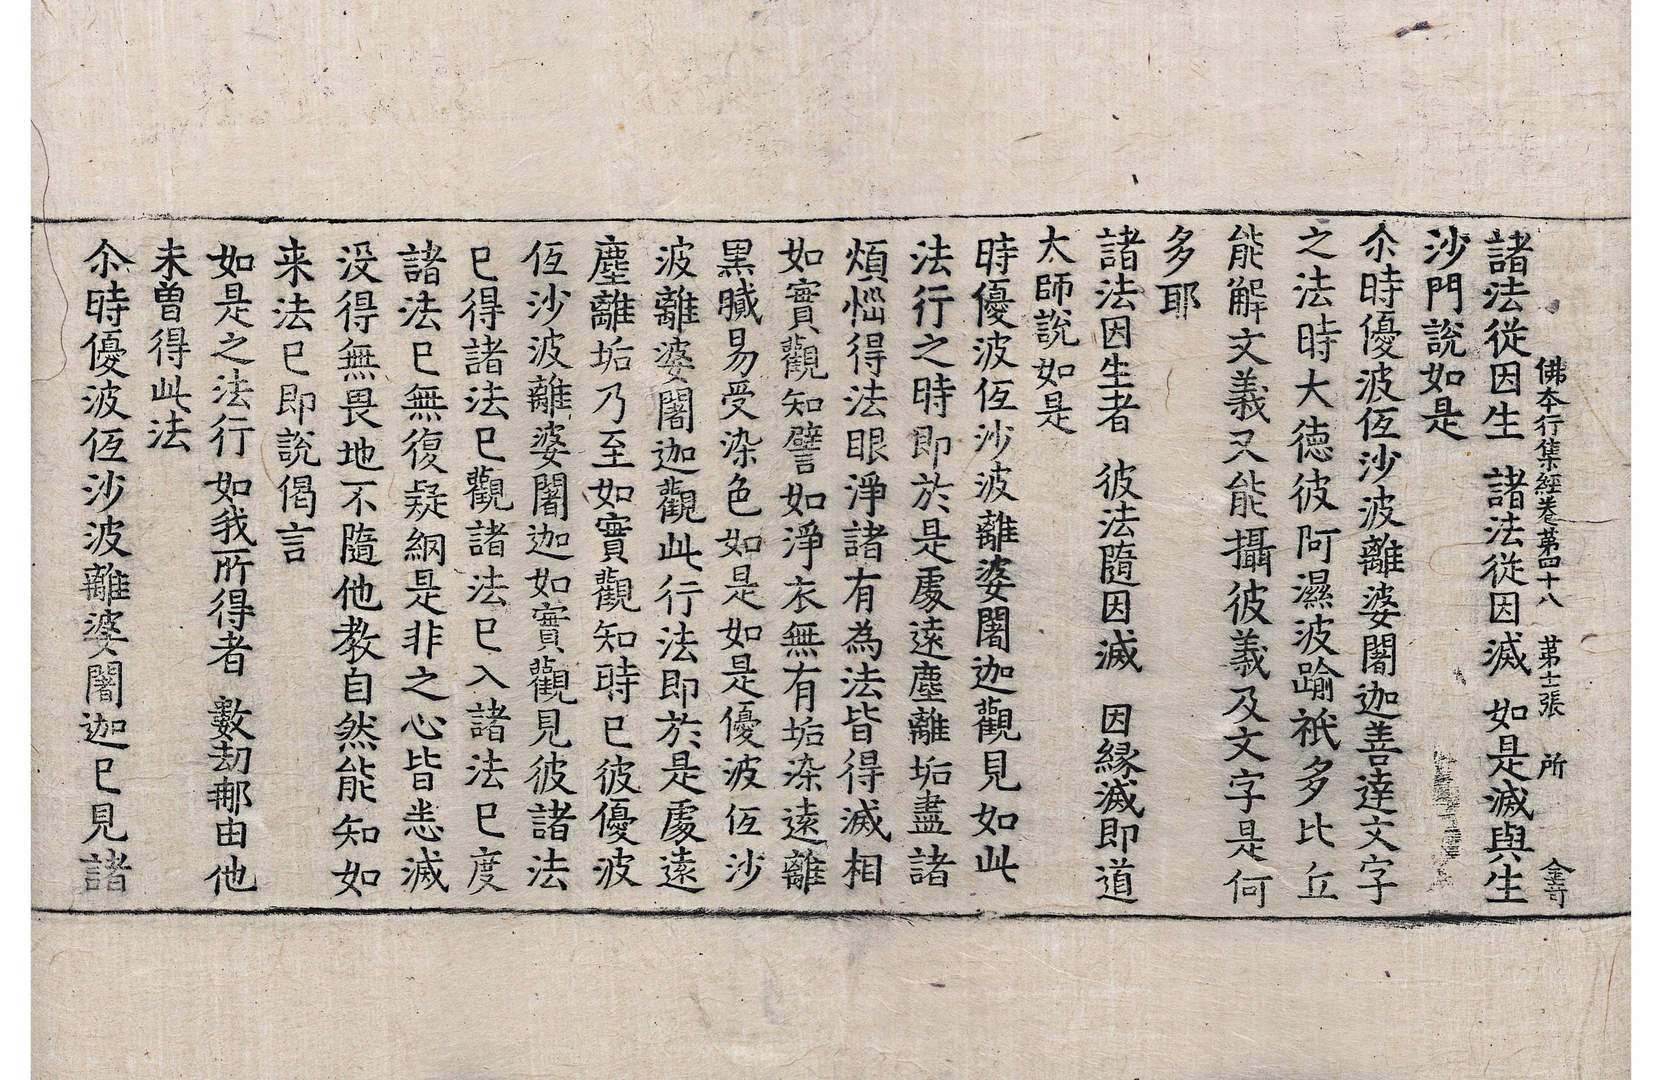 佛本行集經卷第四十八 第十一張 所 金章
諸法從因生 諸法從因滅 如是滅與生
沙門說如是
尒時優波伍沙波離婆闍迦善達文字
之法時大德彼阿濕波踰祇多比丘
能解文義又能攝彼義及文字是何
多耶
諸法因生者 彼法隨因滅 因緣滅即道
太師說如是
時優波伍沙波離婆闍迦觀見如此
法行之時即於是處遠塵離垢盡諸
煩惱得法眼淨諸有為法皆得滅相
如實觀知譬如淨衣無有垢染遠離
黑膩易受染色如是如是優波伍沙
波離婆闍迦觀此行法即於是處遠
塵離垢乃至如實觀知時已彼優波
伍沙波離婆闍迦如實觀見彼諸法
已得諸法已觀諸法已入諸法已度
諸法已無復疑網是非之心皆悉滅
没得無畏地不隨他教自然能知如
来法已即說偈言
如是之法行 如我所得者 數劫那由他
未曾得此法
尒時優波伍沙波離婆闍迦已見諸